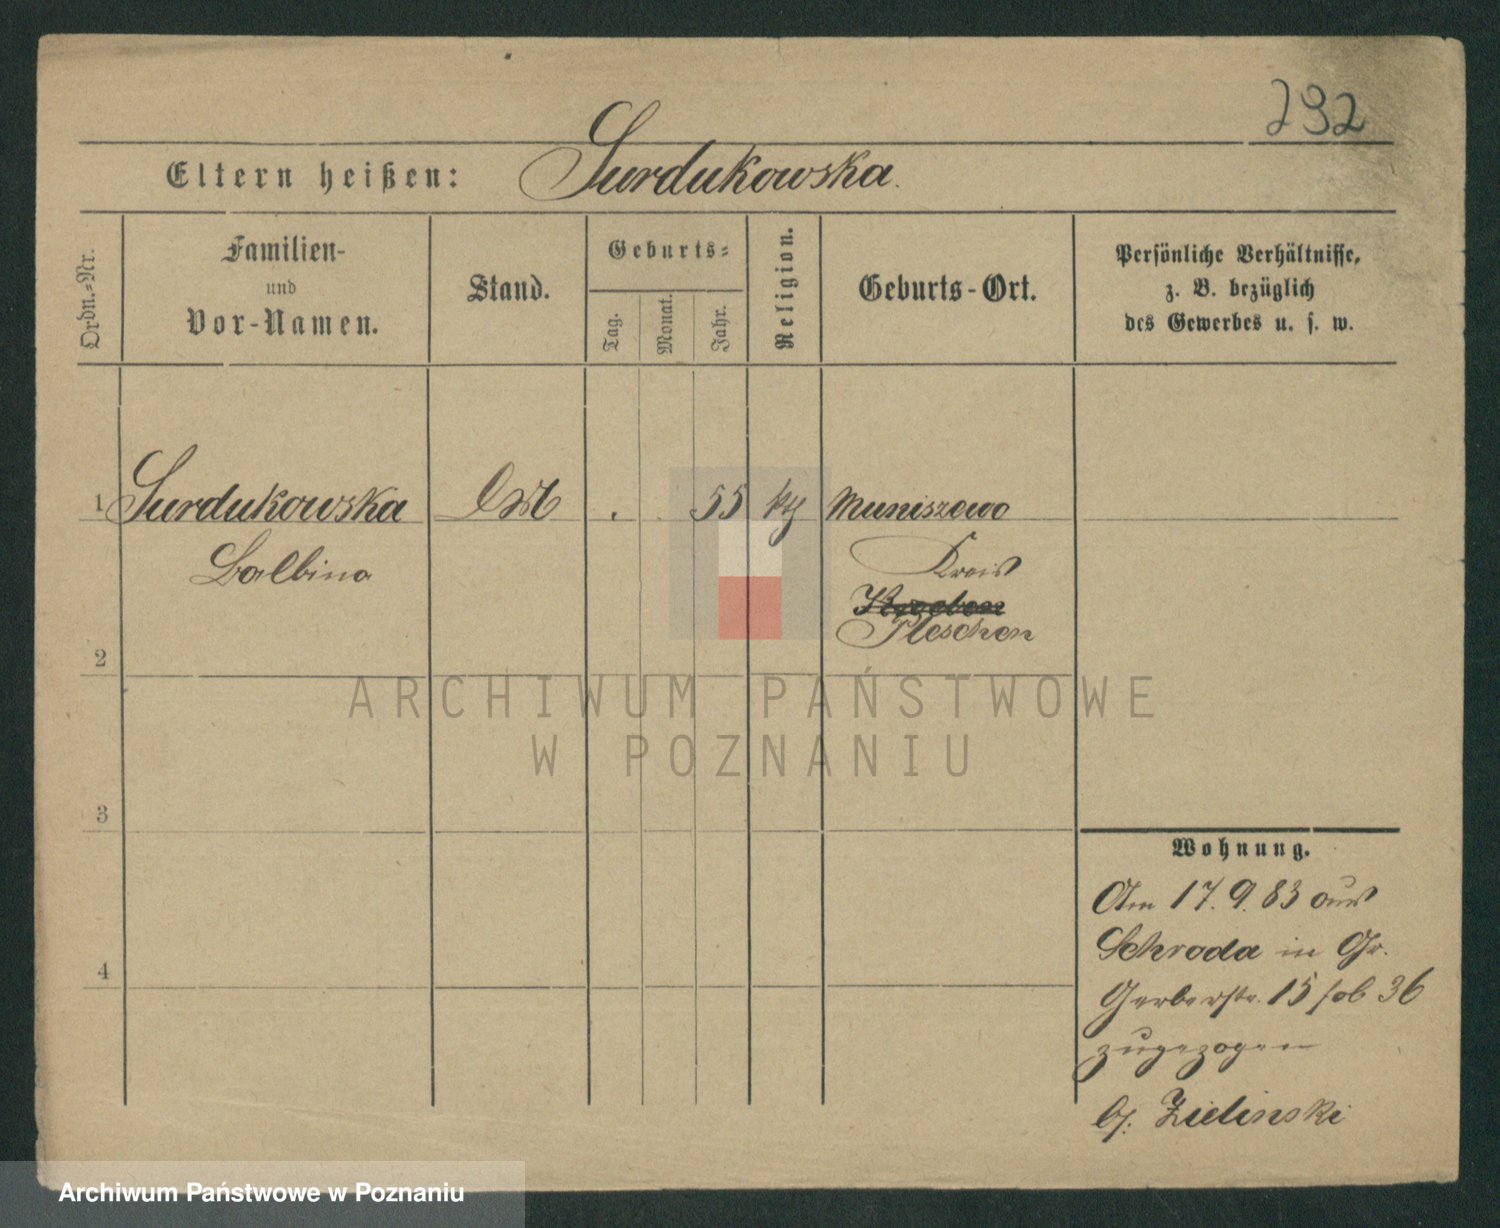 292
Eltern heißen: Surdukowska.
Ordn.-Nr.
Familien-
und
Vor-Namen.
Stand.
Geburts-
Tag.
Monat.
Jahr.
Religion.
Geburts-Ort.
Persönliche Verhältnisse,
z. B. bezüglich
des Gewerbes u. s. w.
1 Surdukowska . 55 kth Muniszewo
Balbina Kreis
Kroeben
Pleschen
2
3
4
Wohnung.
Am 17. 9. 83 aus
Schroda in Gr.
Gerberstr. 15 / ob 36
zugezogen
b/. Zielinski
ARCHIWUM PAŃSTWOWE
W POZNANIU
Archiwum Państwowe w Poznaniu